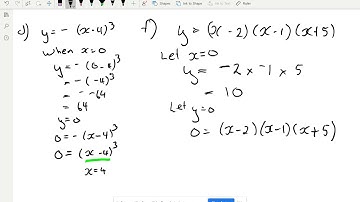 d) y = - (x-4)³
when x=0
y = - (0-4)³
= - (-4)³
= - -64
= 64
y=0
0 = - (x-4)³
0 = (x-4)³
x=4
f) y = (x-2)(x-1)(x+5)
Let x=0
y = -2 × -1 × 5
= 10
Let y=0
0 = (x-2)(x-1)(x+5)